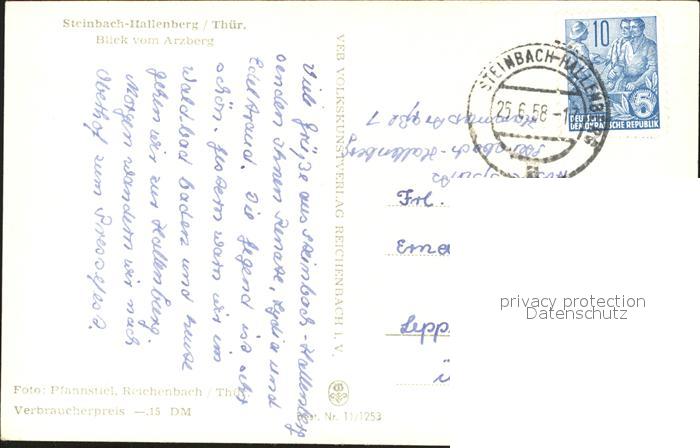 Steinbach-Hallenberg / Thür.
Blick vom Arzberg
Viele Grüße aus Steinbach-Hallenberg
senden Ihnen Renate, Lydia und
Edeltraud. Die Gegend ist sehr
schön. Gestern warn wir im
Waldbad baden und heute
gehen wir zur Hallenburg.
Morgen wandern wir nach
Oberhof zum Pressefest.
Foto: Pfannstiel, Reichenbach / Thür.
Verbraucherpreis —.15 DM
VEB VOLKSKUNSTVERLAG REICHENBACH i. V.
Best. Nr. 11/1253
STEINBACH-HALLENBERG
25.6.58
10
5
DEUTSCHE
DEMOKRATISCHE REPUBLIK
Steinbach-Hallenberg
Hammerstraße 7
Frl.
Erna
Sepp
ü
privacy protection
Datenschutz